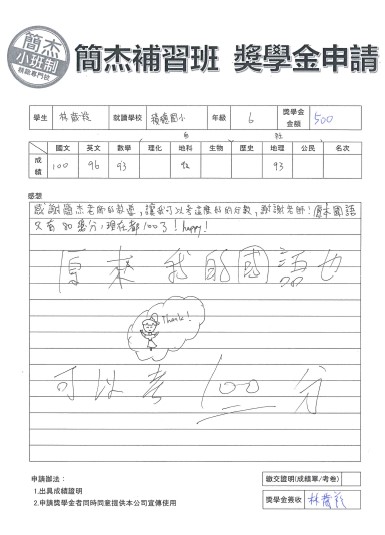 簡杰
小班制
簡杰補習班 獎學金申請
學生 就讀學校 積穗國小 年級 6 獎學金金額 500
國文 英文 數學 理化 地科 生物 歷史 地理 公民 名次
成績 100 96 93 93
感想
感謝簡杰老師的教導,讓我可以考這麼好的分數,謝謝老師!原本國語
又有80幾分,現在都100了!happy!
原來我的國語也
Thanks!
可以考100分
申請辦法:
1.出具成績證明
2.申請獎學金者同時同意提供本公司宣傳使用
繳交證明(成績單/考卷)
獎學金簽收